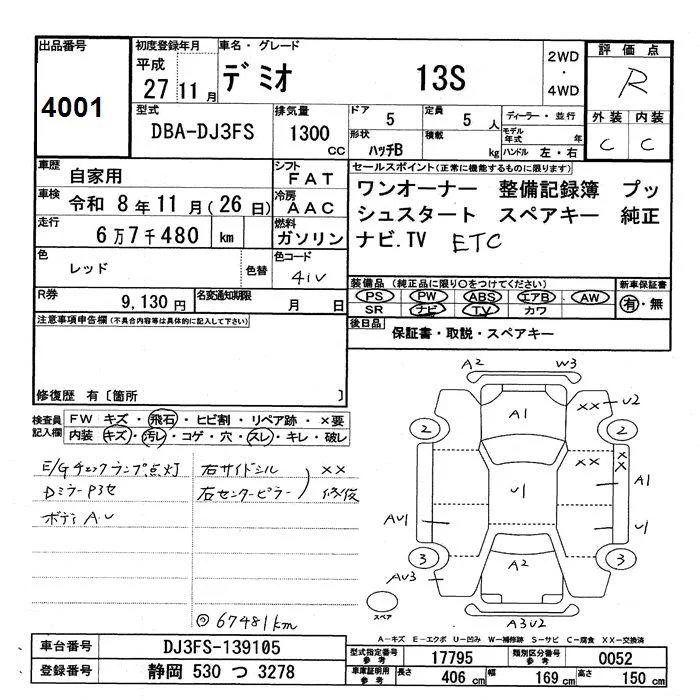 出品番号
4001
初度登録年月
平成
27 11 月
車名・グレード
デミオ 13S
2WD
・
4WD
評価点
R
外装 内装
C C
型式
DBA-DJ3FS
排気量
1300
CC
ドア
5
定員
5 人
形状
ハッチB
積載
kg
ディーラー・並行
モデル年式 年
ハンドル 左・右
車歴
自家用
シフト
FAT
車検
令和 8年11月(26日)
冷房
AAC
走行
6万7千480 km
燃料
ガソリン
色
レッド
色替
色コード
41V
R券
9,130円
名変通知期限
月 日
セールスポイント(正常に機能するものに限ります)
ワンオーナー 整備記録簿 プッ
シュスタート スペアキー 純正
ナビ.TV ETC
装備品(純正品に限り○をつけてください)
PS PW ABS エアB AW
SR ナビ TV カワ
新車保証書
有・無
後日品
保証書・取説・スペアキー
注意事項申告欄(不具合内容等は具体的に記入して下さい)
修復歴 有〔箇所 〕
検査員記入欄
FW キズ・飛石・ヒビ割・リペア跡・×要
内装 キズ・汚レ・コゲ・穴・スレ・キレ・破レ
E/Gチェックランプ点灯
右サイドシル
右センターピラー
) ××修復
ボディAU
◎67481km
A2 W3
A1 ×× U2
2 2
×× ×× A1
U1
AU1 U1
3 A2 3
AU3
A3U2
スペア
A-キズ E-エクボ U-凹み W-補修跡 S-サビ C-腐食 XX-交換済
車台番号
DJ3FS-139105
登録番号
静岡 530 つ 3278
型式指定番号
参考
17795
類別区分番号
参考
0052
車庫証明用
参考
長さ
406 cm
幅
169 cm
高さ
150 cm